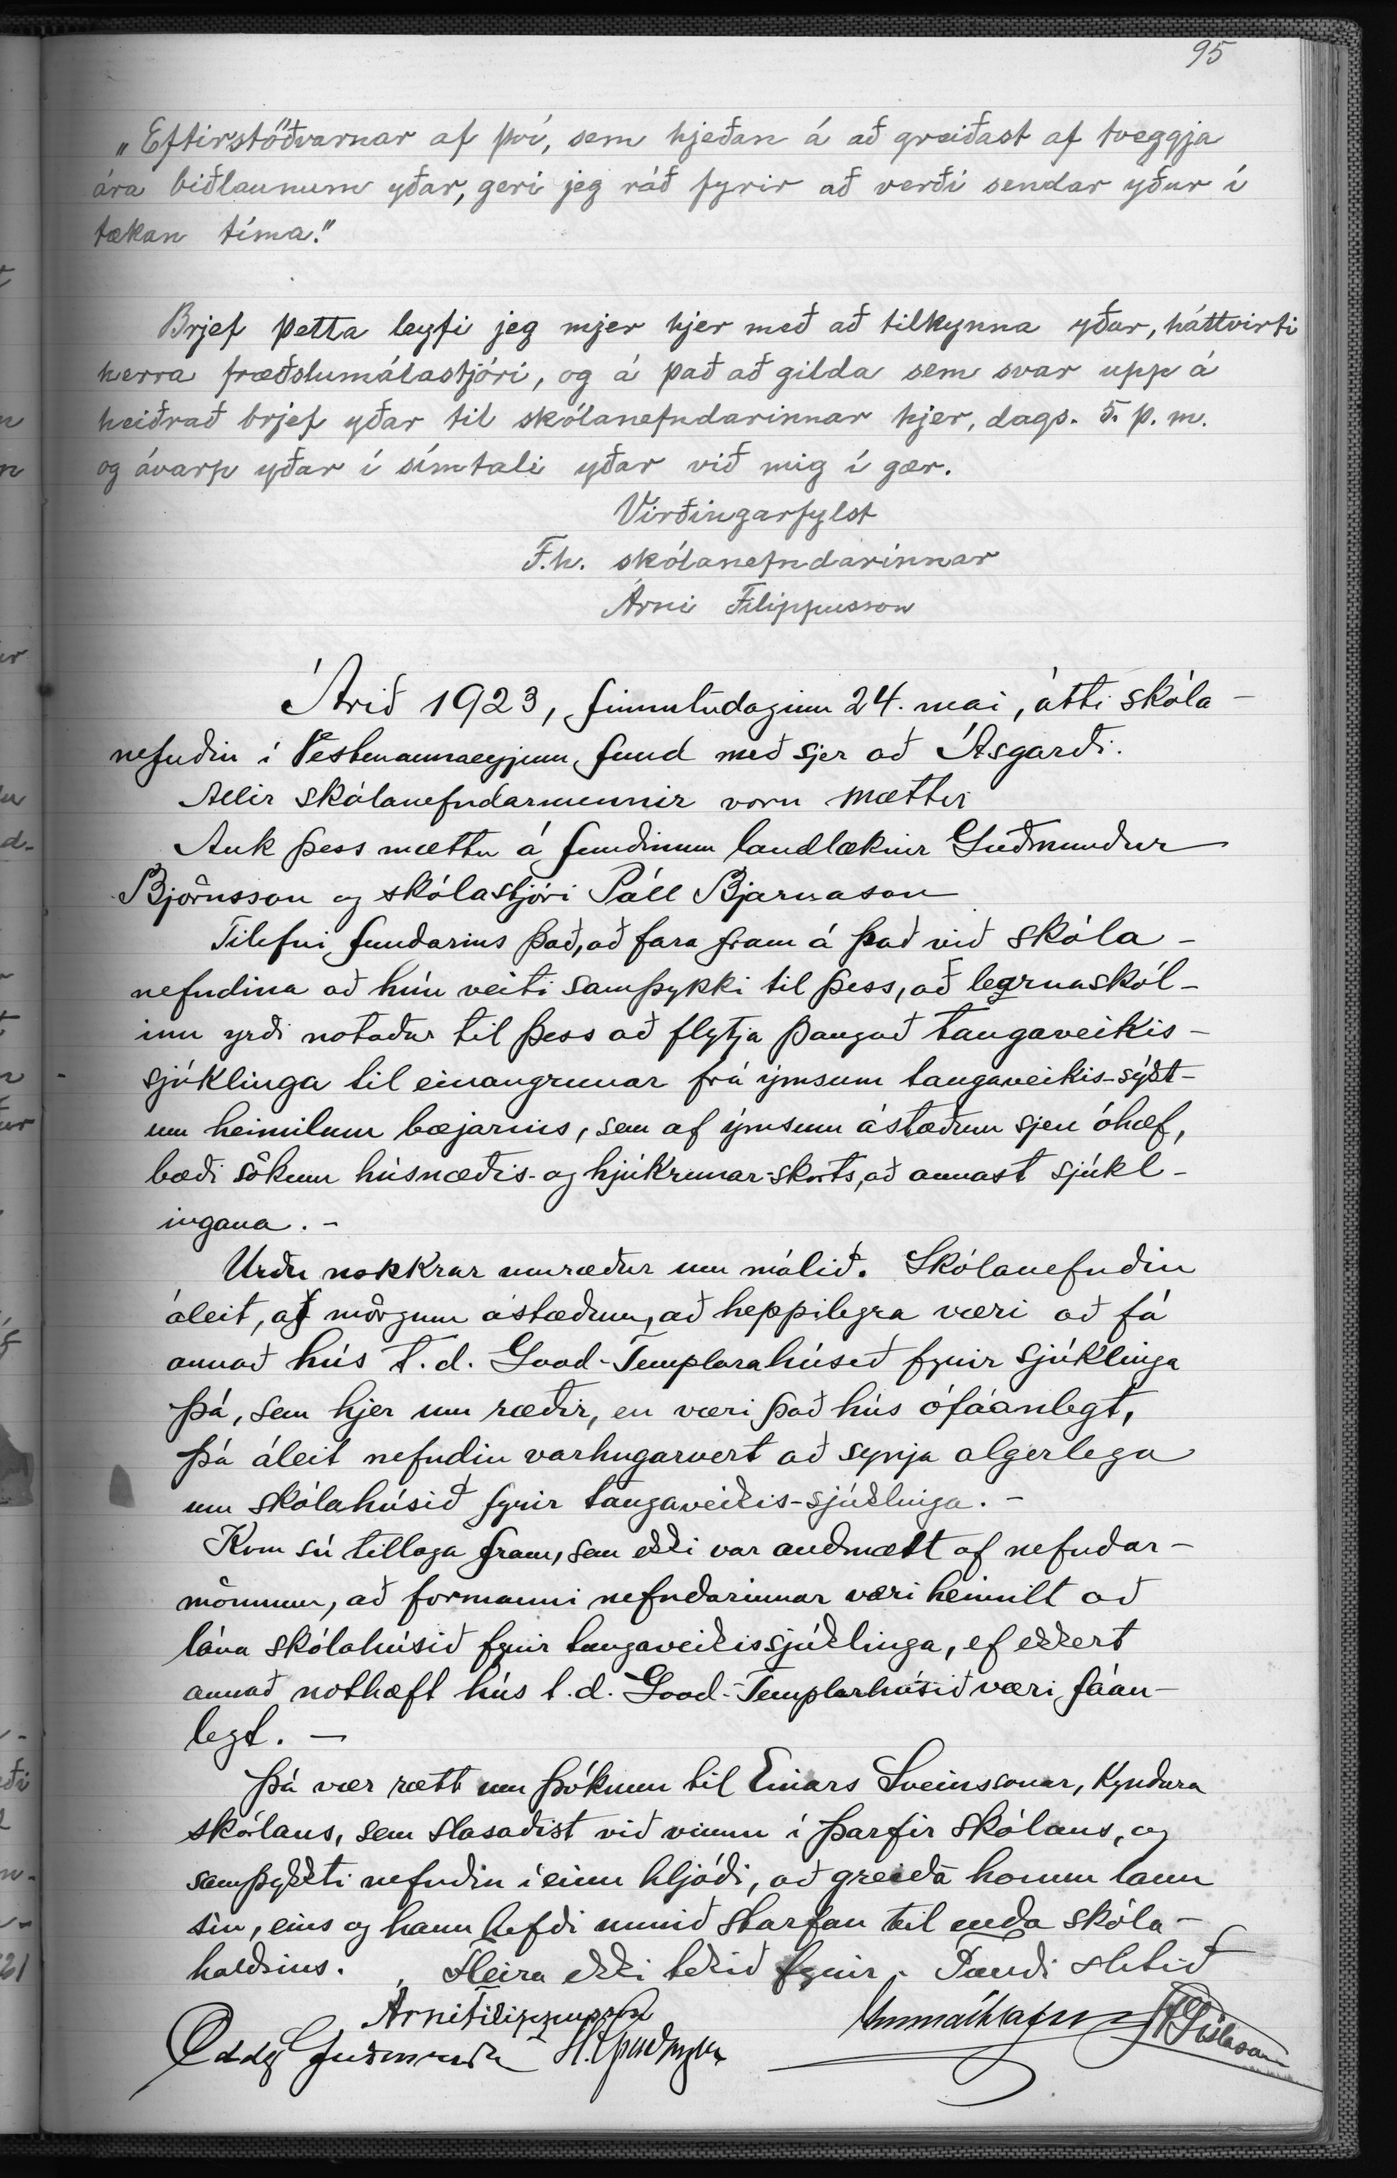 95
„Eftirstöðvarnar af því, sem hjeðan á að greiðast af tveggja
ára biðlaunum yðar, geri jeg ráð fyrir að verði sendar yður í
tækan tíma."
Brjef þetta leyfi jeg mjer hjer með að tilkynna yður, háttvirti
herra fræðslumálastjóri, og á það að gilda sem svar upp á
heiðrað brjef yðar til skólanefndarinnar hjer, dags. 5. þ. m.
og ávarp yðar í símtali yðar við mig í gær.
Virðingarfylst
F.h. skólanefndarinnar
Árni Filippusson
Árið 1923, fimmtudaginn 24. mai, átti skóla-
nefndin í Vestmannaeyjum, fund með sjer að Ásgarði.
Allir skólanefndarmennir voru mættir
Auk þess mættu á fundinum landlæknir Guðmundur
Björnsson og skólastjóri Páll Bjarnason
Tilefni fundarins það, að fara fram á það við skóla-
nefndina að hún veiti samþykki til þess, að barnaskól-
inn yrði notaður til þess að flytja þangað taugaveikis-
sjúklinga til einangrunar frá ýmsum taugaveikis-sýkt-
um heimilum bæjarins, sem af ýmsum ástæðum sjeu óhæf,
bæði sökum húsnæðis- og hjúkrunar-skorts, að annast sjúkl-
ingana. -
Urðu nokkrar umræður um málið. Skólanefndin
áleit, af mörgum ástæðum, að heppilegra væri að fá
annað hús t.d. Good-Templarahúsið fyrir sjúklinga
þá, sem hjer um ræðir, en væri það hús ófáanlegt,
þá áleit nefndin varhugarvert að synja algerlega
um skólahúsið fyrir taugaveikis-sjúklinga. -
Kom sú tillaga fram, sem ekki var andmælt af nefndar-
mönnum, að formanni nefndarinnar væri heimilt að
lána skólahúsið fyrir taugaveikissjúklinga, ef ekkert
annað nothæft hús t.d. Good-Templarhúsið væri fáan-
legt. —
Þá var rætt um þóknun til Einars Sveinssonar, kyndara
skólans, sem slasaðist við vinnu í þarfir skólans, og
samþykkti nefndin í einu hljóði, að greiða honum laun
sín, eins og hann hefði unnið starfan til enda skóla-
haldsins. Fleira ekki tekið fyrir. Fundi slitið
Árni Filippusson
Oddg Guðmunds
Gíslason